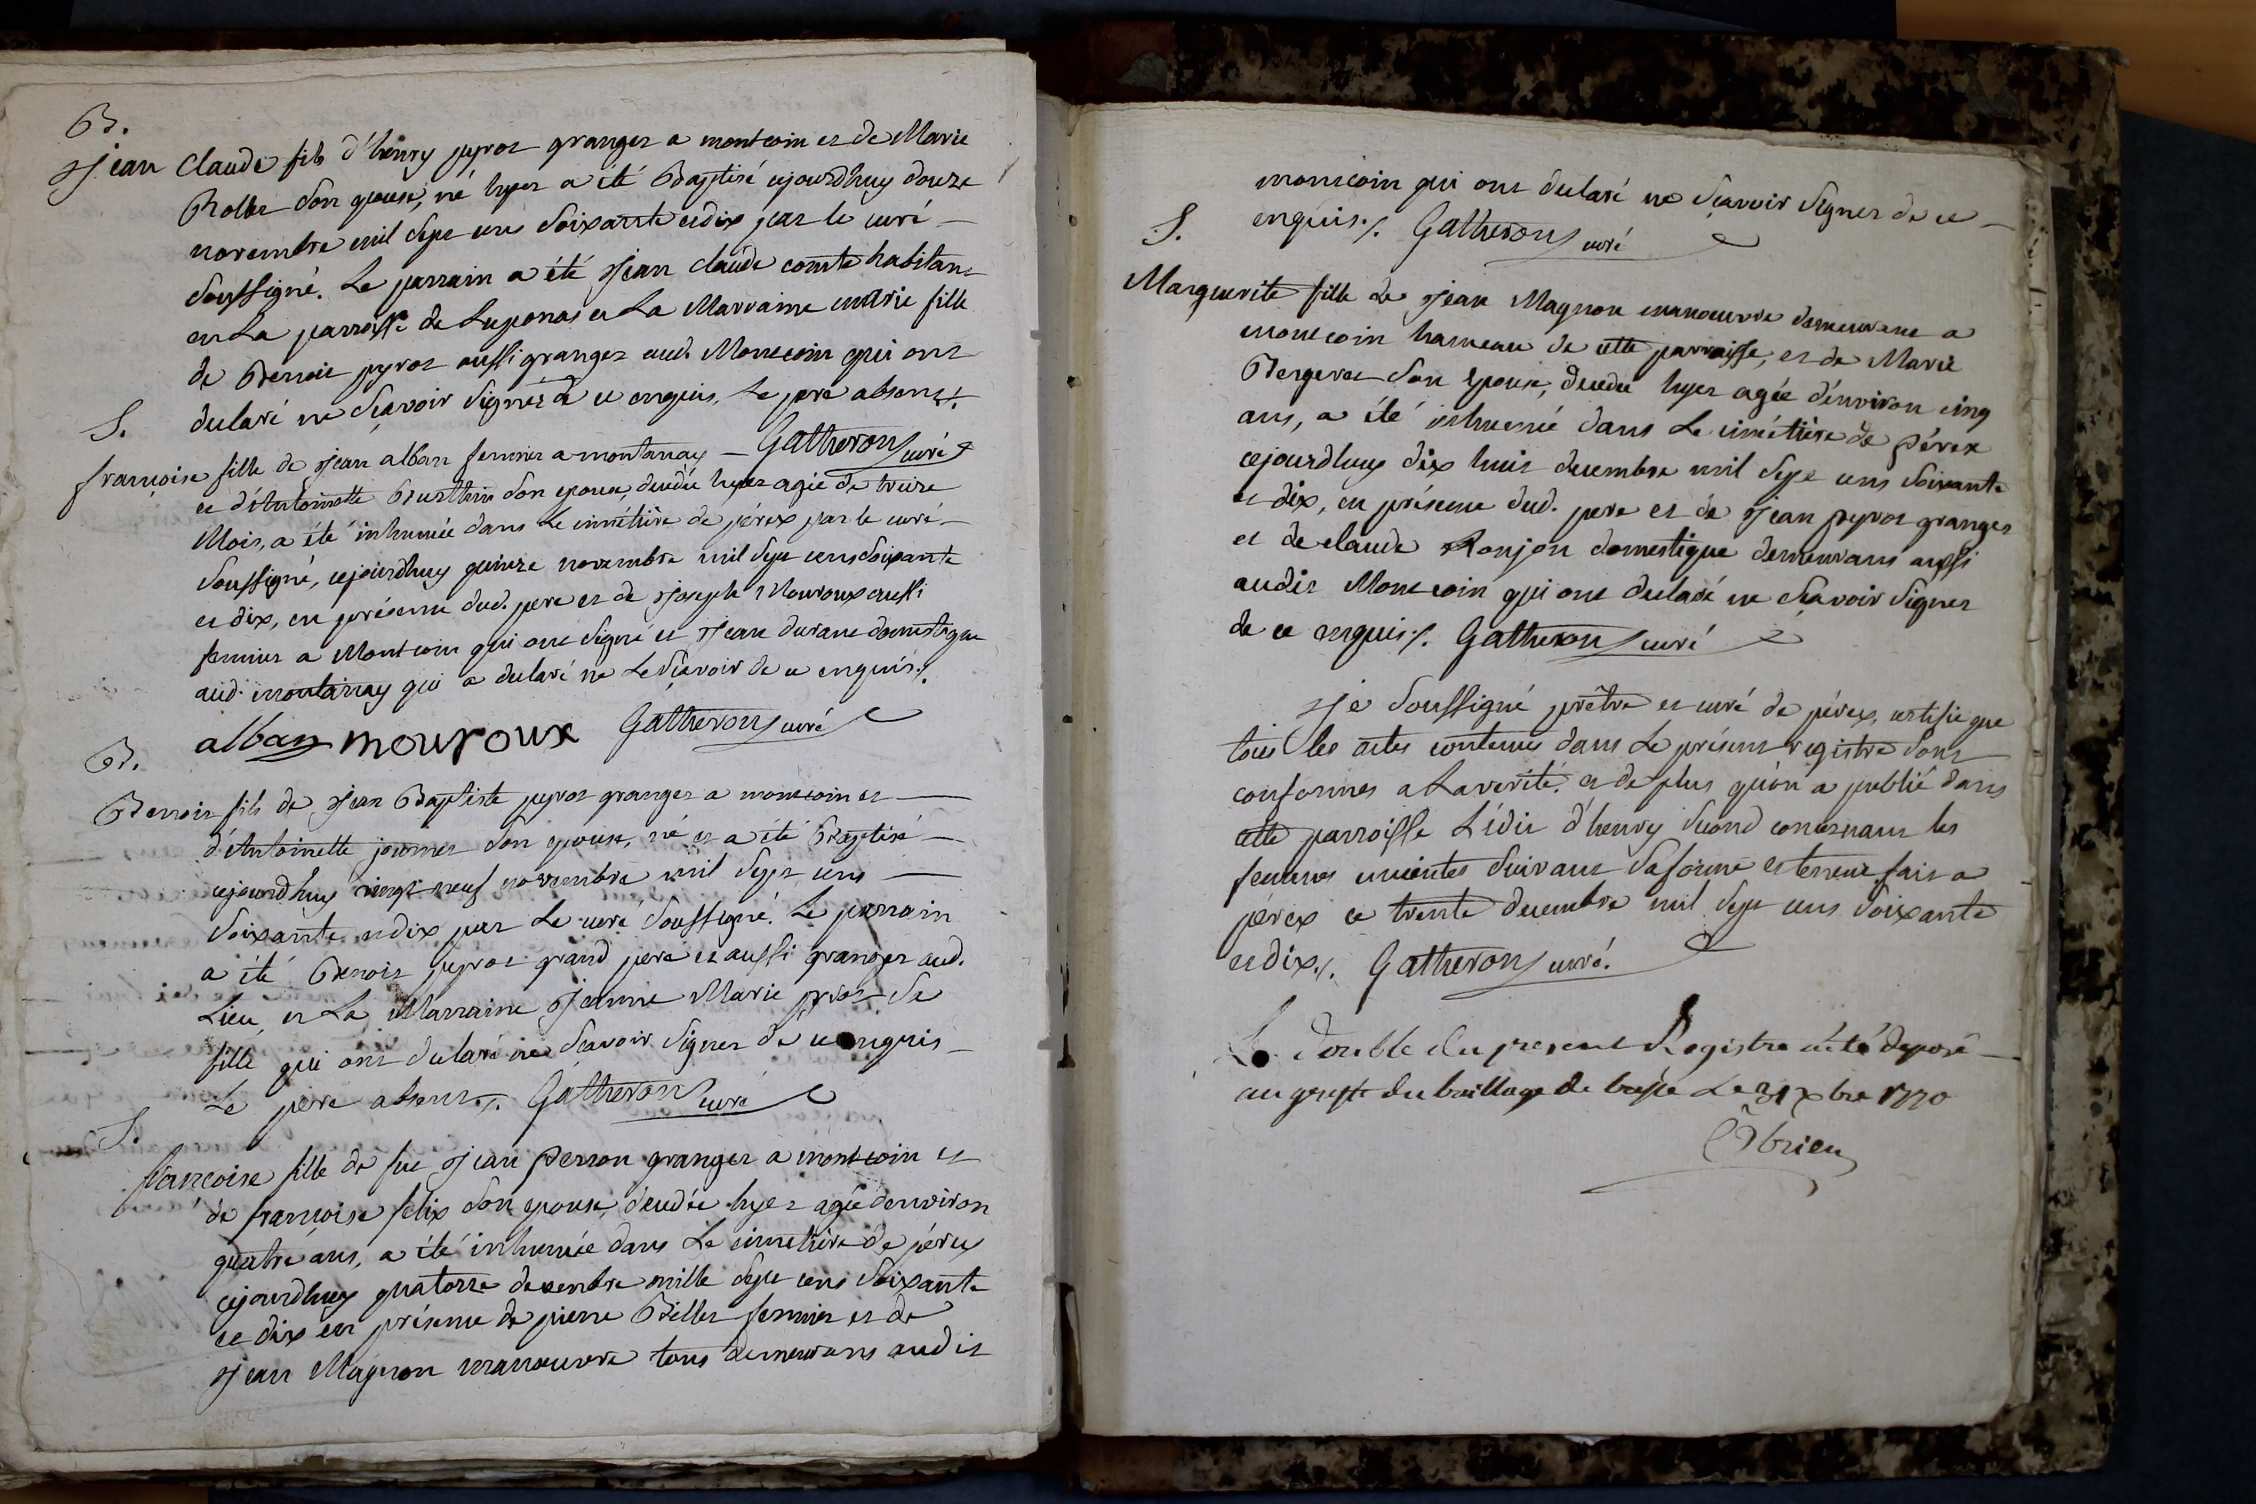 B.
Jean Claude fils d'henry pyrot granger a montcoin et de Marie
Rollet son epouse, né hyer a été Baptisé cejourdhuy douze
novembre mil sept cens soixante et dix par le curé
soussigné. Le parrain a été Jean claude comte habitant
en La parroisse de Luponas et La Marraine marie fille
de Benoit pyrot aussi granger aud. Montcoin qui ont
declaré ne sçavoir signer de ce enquis, Le pere absent./.
S.
françoise fille de Jean alban fermier a montanay — Gatheron curé
et d'Antoinette son epouse, decedée hyer agée de treize
Mois, a été inhumée dans Le cimétière de pérex par le curé
soussigné, cejourdhuy quinze novembre mil sept cens soixante
et dix, en présence dud. pere et de Joseph Mouroux aussi
fermier a Montcoin qui ont signé et Jean durand domestique
aud. montanay qui a declaré ne Le sçavoir de ce enquis./.
alban mouroux Gatheron curé
B.
Benoit fils de Jean Baptiste pyrot granger a montcoin et
d'Antoinette son epouse, né et a été Baptisé
cejourdhuy vingt neuf novembre mil sept cens
soixante et dix par Le curé soussigné. Le parrain
a été Benoit pyrot grand pere et aussi granger aud.
Lieu, et La Marraine Jeanne Marie pyrot sa
fille qui ont declaré ne sçavoir signer de ce enquis
Le pere absent./. Gatheron curé
S.
françoise fille de feu Jean perron granger a montcoin et
de françoise felix son epouse, decedée hyer agée denviron
quatre ans, a été inhumée dans Le cimetière de pérex
cejourdhuy quatorze decembre mille sept cens soixante
et dix en présence de pierre Billet fermier et de
Jean Magnon manoeuvre tous demeurans audit
montcoin qui ont declaré ne sçavoir signer de ce
enquis./. Gatheron curé
S.
Marguerite fille de Jean Magnon manoeuvre demeurant a
montcoin hameau de cette parroisse, et de Marie
Bergeret son epouse, decedée hyer agée d'environ cinq
ans, a été inhumée dans Le cimétière de pérex
cejourdhuy dix huit decembre mil sept cens soixante
et dix, en présence dud. pere et de Jean pyrot granger
et de claude Ronjon domestique demeurans aussi
audit Montcoin qui ont declaré ne sçavoir signer
de ce enquis./. Gatheron curé
Je soussigné prêtre et curé de pérex, certifie que
tous les actes contenus dans Le présent registre sont
conformes a La verité, et de plus qu'on a publié dans
cette parroisse L'édit d'henry second concernant les
femmes enceintes suivant sa forme et teneur fait a
pérex ce trente decembre mil sept cens soixante
et dix./. Gatheron curé.
Le double du present Registre a été deposé
au greffe du bailliage de bresse Le 31 xbre 1770